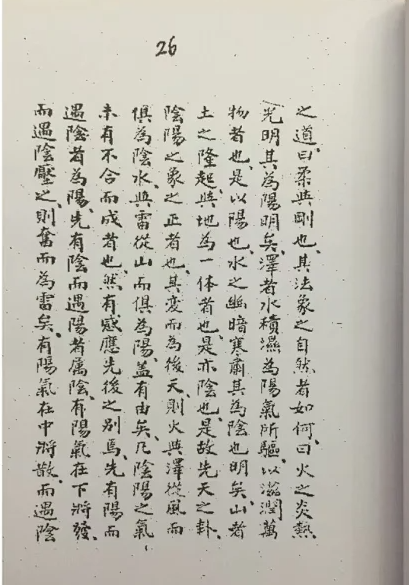 26
之道曰柔與剛也其法象之自然者如何曰火之炎熱
光明其為陽明矣澤者水積濕為陽氣所驅以滋潤萬
物者也是以陽也水之幽暗寒肅其為陰也明矣山者
土之隆起與地為一体者也是亦陰也是故先天之卦
陰陽之象之正者也其变而為後天則火與澤從風而
俱為陰水與雷從山而俱為陽盖有由矣凡陰陽之氣
未有不合而成者也然有感應先後之別焉先有陽而
遇陰者為陽先有陰而遇陽者属陰有陽氣在下將發
而遇陰壓之則奮而為雷矣有陽氣在中將散而遇陰